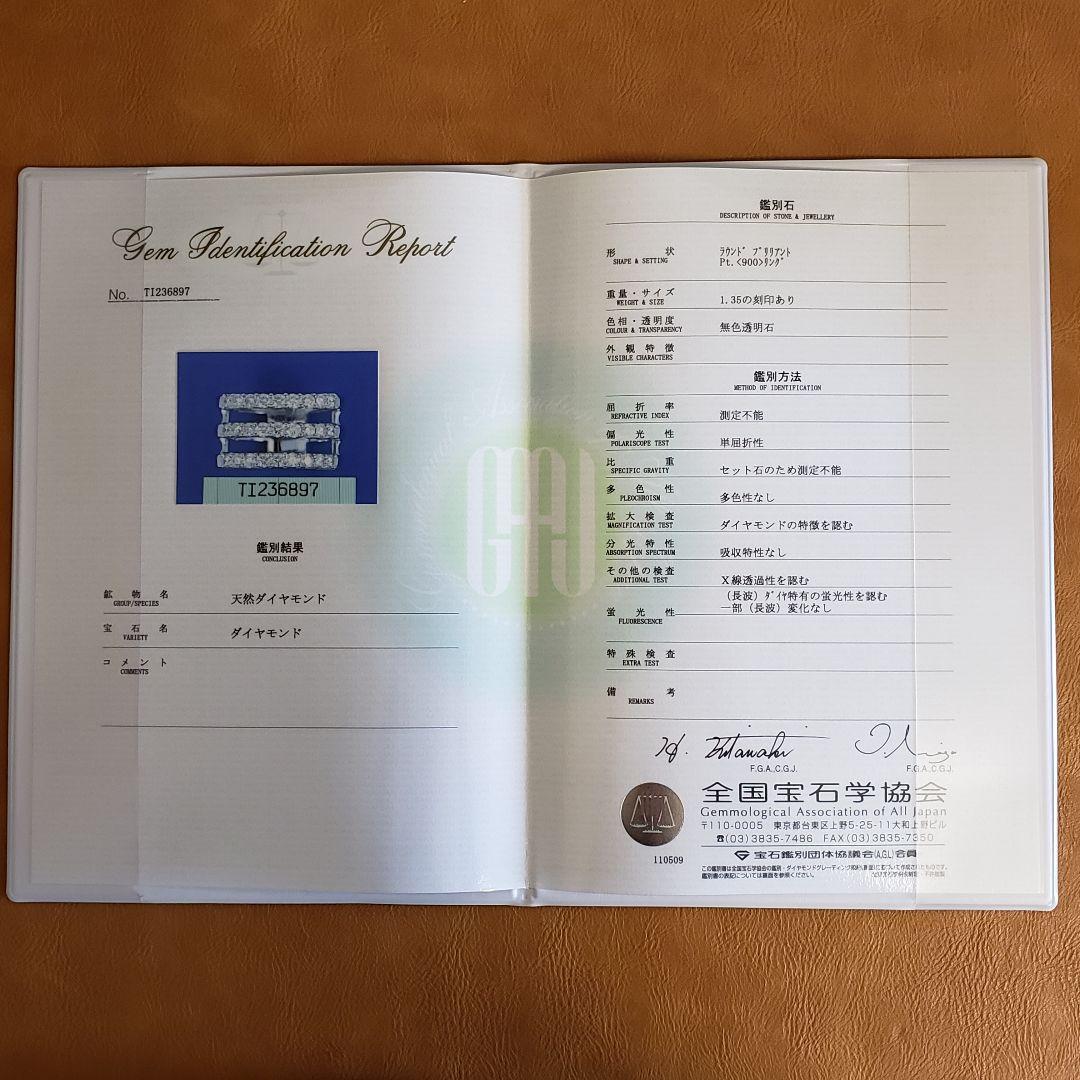 Gem Identification Report
No. TI236897
TI236897
鑑別結果
CONCLUSION
鉱物名 天然ダイヤモンド
GROUP/SPECIES
宝石名 ダイヤモンド
VARIETY
コメント
COMMENTS
鑑別石
DESCRIPTION OF STONE & JEWELLERY
形状 ラウンド ブリリアント
SHAPE & SETTING Pt.<900>リング
重量・サイズ 1.35の刻印あり
WEIGHT & SIZE
色相・透明度 無色透明石
COLOUR & TRANSPARENCY
外観特徴
VISIBLE CHARACTERS
鑑別方法
METHOD OF IDENTIFICATION
屈折率 測定不能
REFRACTIVE INDEX
偏光性 単屈折性
POLARISCOPE TEST
比重 セット石のため測定不能
SPECIFIC GRAVITY
多色性 多色性なし
PLEOCHROISM
拡大検査 ダイヤモンドの特徴を認む
MAGNIFICATION TEST
分光特性 吸収特性なし
ABSORPTION SPECTRUM
その他の検査 X線透過性を認む
ADDITIONAL TEST
(長波)ダイヤ特有の蛍光性を認む
蛍光性 一部(長波)変化なし
FLUORESCENCE
特殊検査
EXTRA TEST
備考
REMARKS
F.G.A.,C.G.J. F.G.A.,C.G.J.
全国宝石学協会
Gemmological Association of All Japan
〒110-0005 東京都台東区上野5-25-11大和上野ビル
☎(03)3835-7486 FAX(03)3835-7350
110509
宝石鑑別団体協議会(A.G.L)会員
鑑別書の表記については裏面を参照ください。